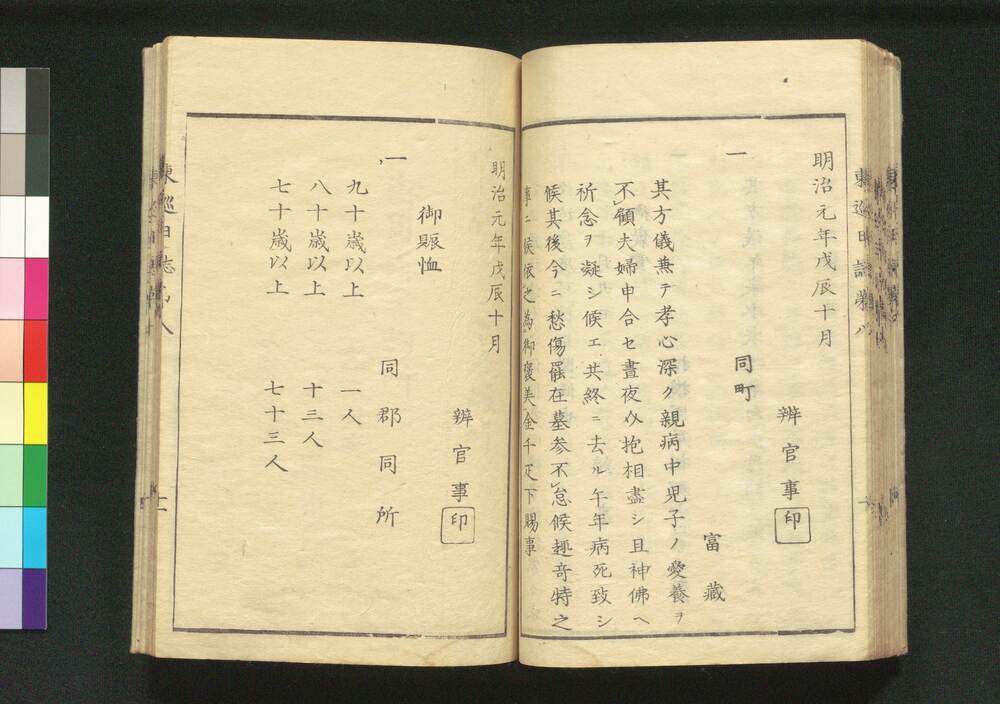 明治元年戊辰十月
辨官事印
一
同町
富藏
其方儀兼テ孝心深ク親病中児子ノ愛養ヲ
不顧夫婦申合セ晝夜〆抱相盡シ且神佛ヘ
祈念ヲ凝シ候エ共終ニ去ル午年病死致シ
候其後今ニ愁傷罷在墓参不怠候趣奇特之
事ニ候依之為御褒美金千疋下賜事
明治元年戊辰十月
辨官事印
一
御賑恤
同郡同所
九十歳以上 一人
八十歳以上 十三人
七十歳以上 七十三人
東巡日誌第八